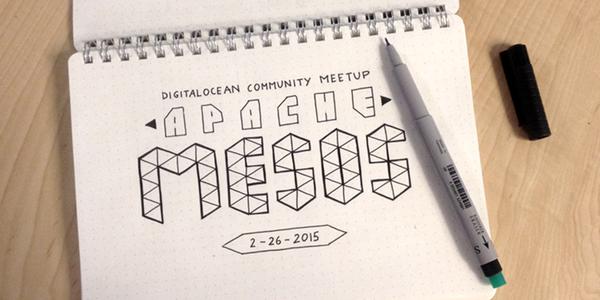 DIGITALOCEAN COMMUNITY MEETUP
APACHE
MESOS
2-26-2015